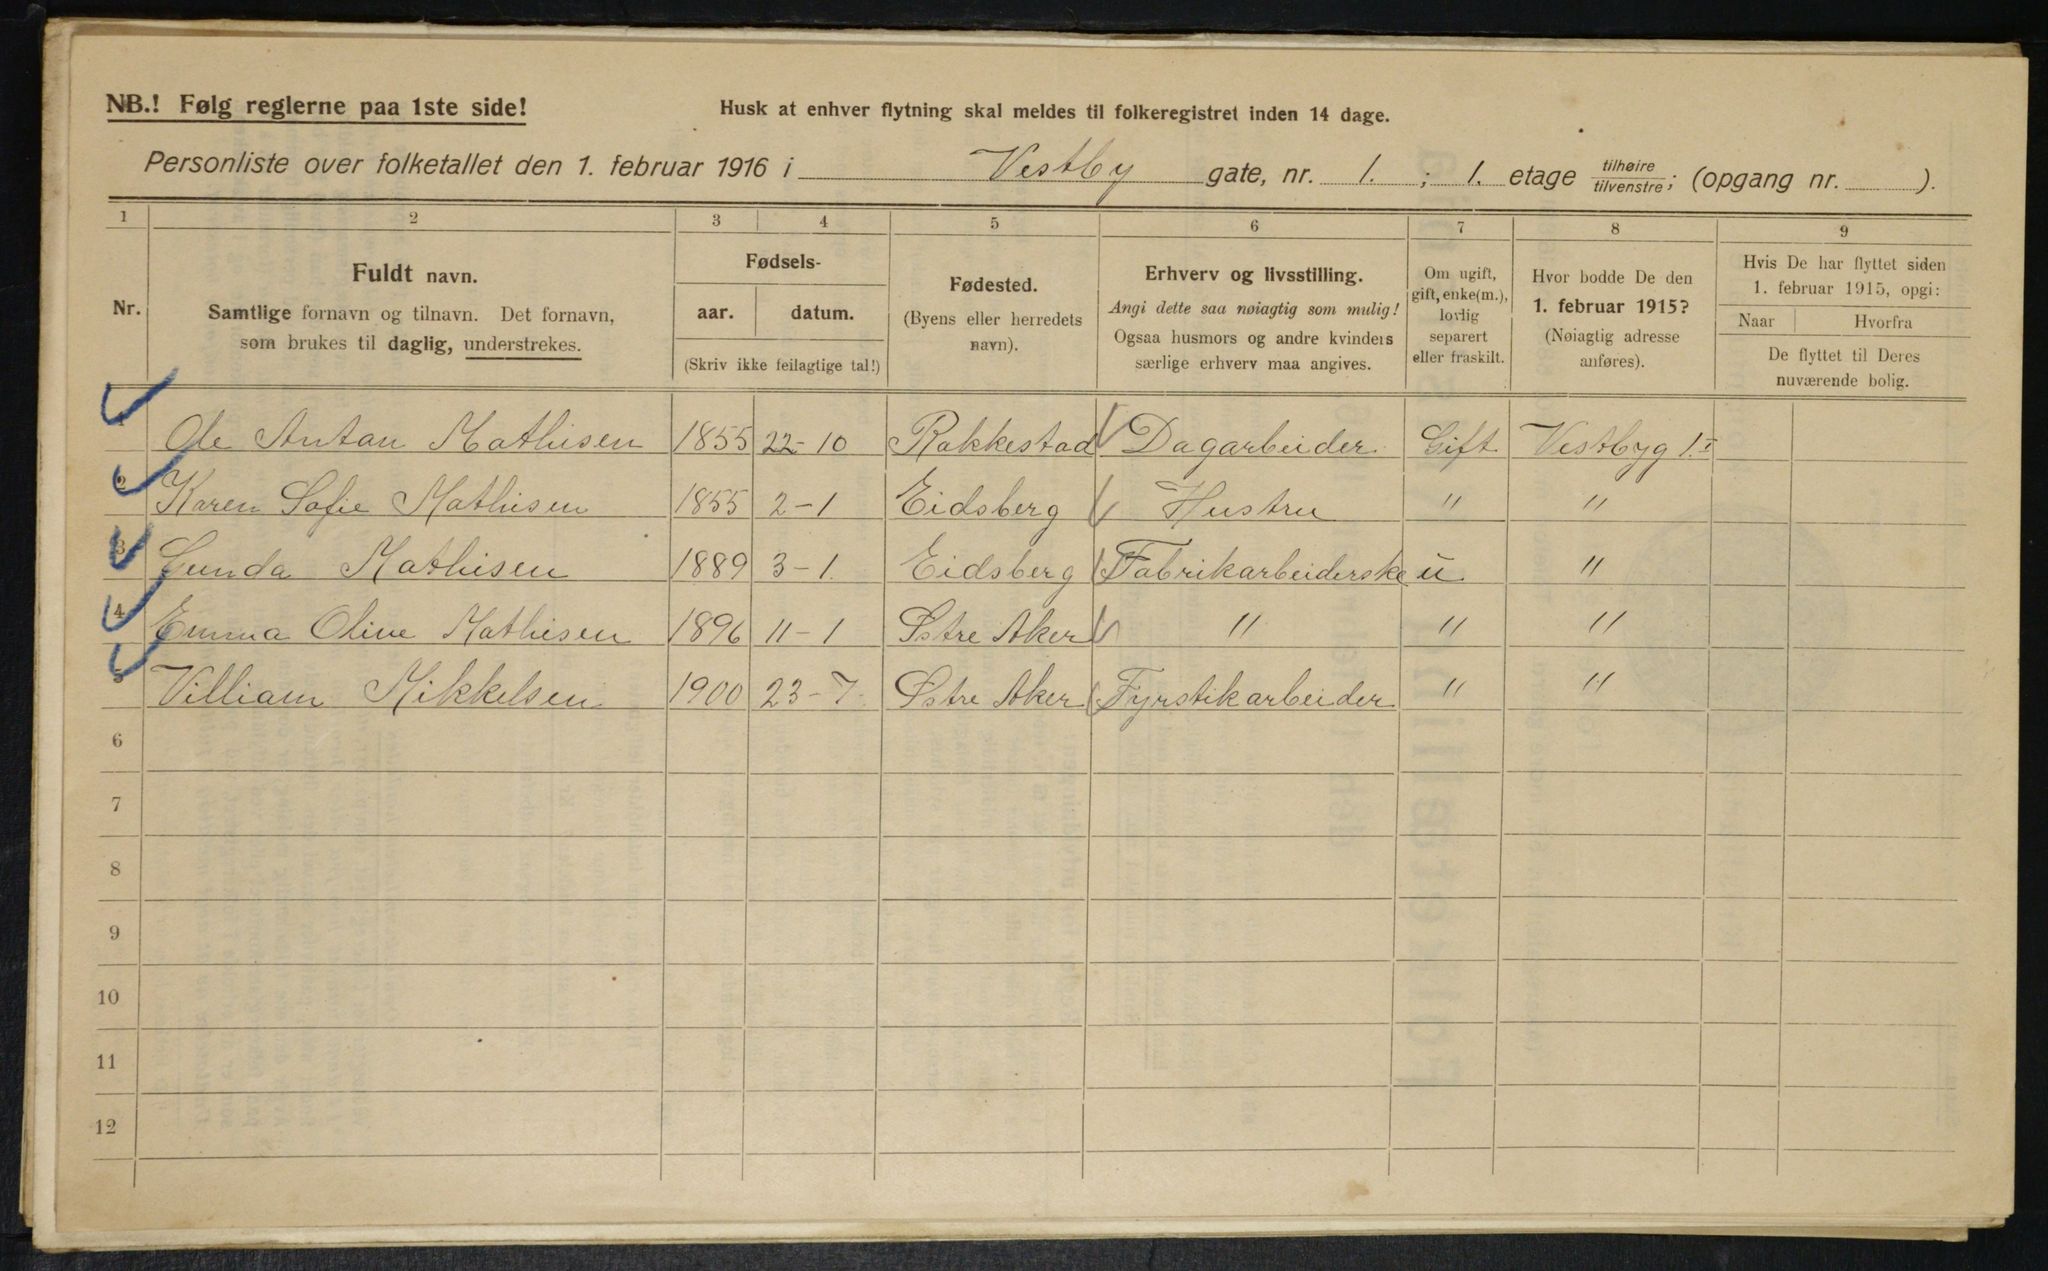 NB.! Følg reglerne paa 1ste side! Husk at enhver flytning skal meldes til folkeregistret inden 14 dage.
Personliste over folketallet den 1. februar 1916 i Vestby gate, nr. 1. ; 1. etage tilhøire/tilvenstre; (opgang nr. ).
1 2 3 4 5 6 7 8 9
Nr.
Fuldt navn.
Samtlige fornavn og tilnavn. Det fornavn,
som brukes til daglig, understrekes.
Fødsels-
aar. datum.
(Skriv ikke feilagtige tal!)
Fødested.
(Byens eller herredets
navn).
Erhverv og livsstilling.
Angi dette saa nøiagtig som mulig!
Ogsaa husmors og andre kvinders
særlige erhverv maa angives.
Om ugift,
gift, enke(m.),
lovlig
separert
eller fraskilt.
Hvor bodde De den
1. februar 1915?
(Nøiagtig adresse
anføres).
Hvis De har flyttet siden
1. februar 1915, opgi:
Naar Hvorfra
De flyttet til Deres
nuværende bolig.
1 Ole Antan Mathisen 1855 22-10 Rakkestad Dagarbeider Gift Vestbyg 1. I
2 Karen Sofie Mathisen 1855 2-1 Eidsberg Hustru " "
3 Gunda Mathisen 1889 3-1. Eidsberg Fabrikarbeiderske u "
4 Emma Olive Mathisen 1896 11-1 Østre Aker " " "
5 Villiam Mikkelsen 1900 23-7. Østre Aker Fyrstikarbeider " "
6
7
8
9
10
11
12